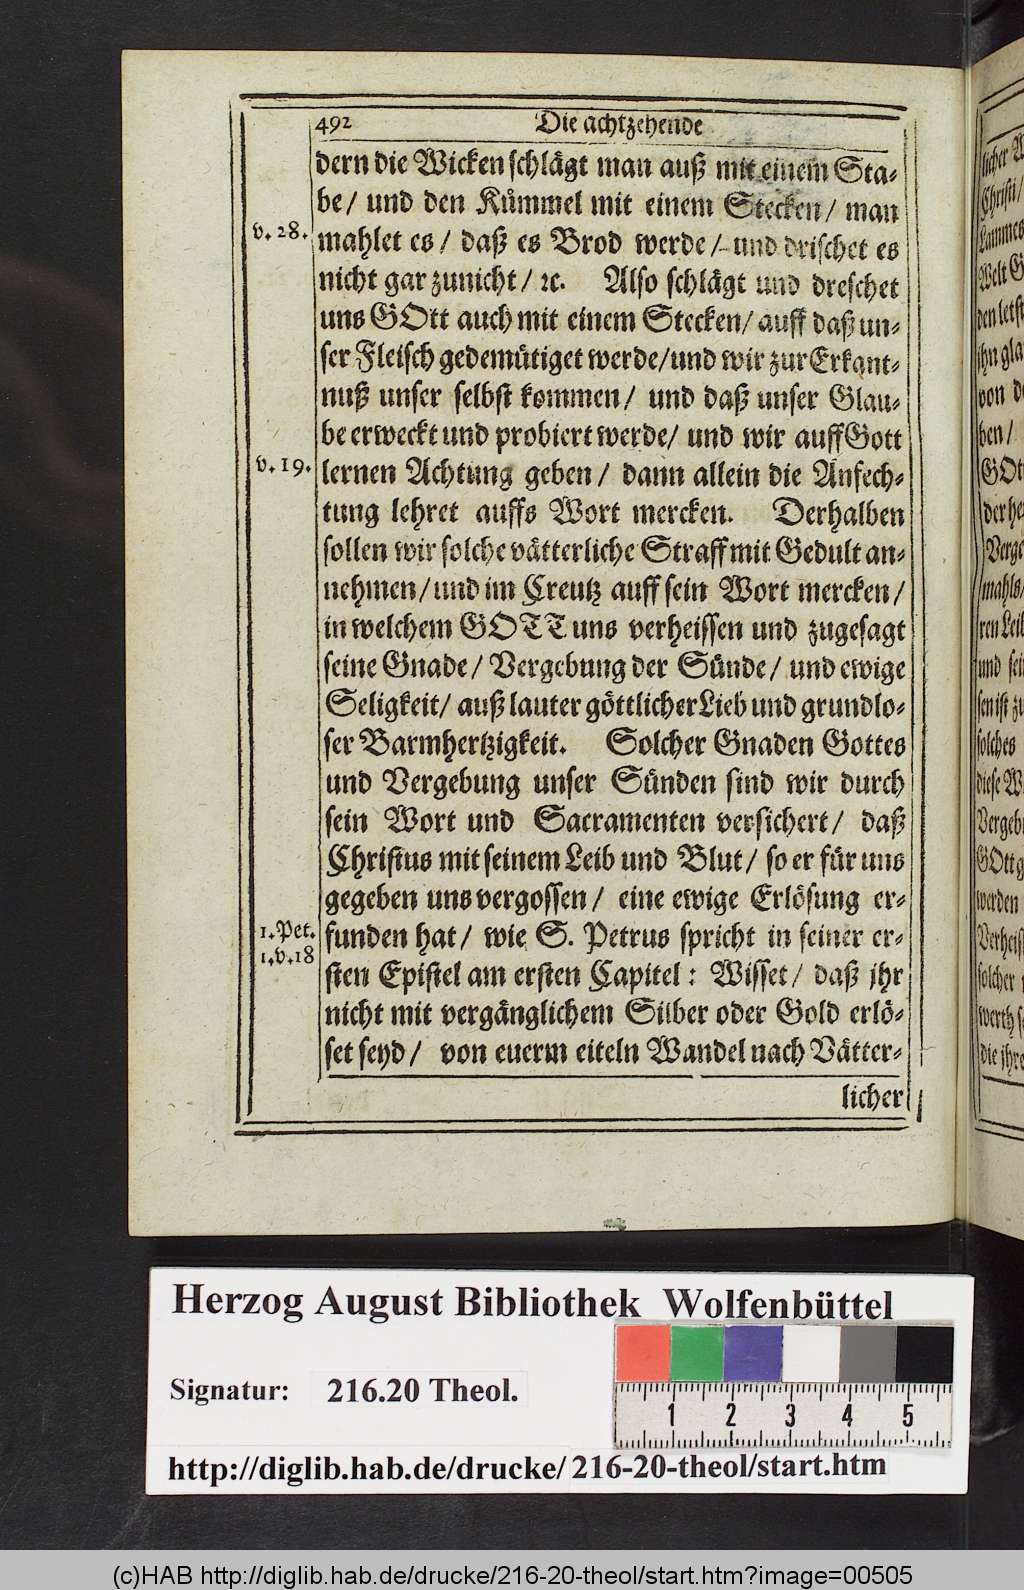 492 Die achtzehende
dern die Wicken schlägt man auß mit einem Sta-
be/ und den Kümmel mit einem Stecken/ man
v. 28.
mahlet es/ daß es Brod werde/ und drischet es
nicht gar zunicht/ ꝛc. Also schlägt und dreschet
uns GOtt auch mit einem Stecken/ auff daß un-
ser Fleisch gedemütiget werde/ und wir zur Erkant-
nuß unser selbst kommen/ und daß unser Glau-
be erweckt und probiert werde/ und wir auff Gott
v. 19.
lernen Achtung geben/ dann allein die Anfech-
tung lehret auffs Wort mercken. Derhalben
sollen wir solche vätterliche Straff mit Gedult an-
nehmen/ und im Creutz auff sein Wort mercken/
in welchem GOTT uns verheissen und zugesagt
seine Gnade/ Vergebung der Sünde/ und ewige
Seligkeit/ auß lauter göttlicher Lieb und grundlo-
ser Barmhertzigkeit. Solcher Gnaden Gottes
und Vergebung unser Sünden sind wir durch
sein Wort und Sacramenten versichert/ daß
Christus mit seinem Leib und Blut/ so er für uns
gegeben uns vergossen/ eine ewige Erlösung er-
1. Pet.
1. v. 18
funden hat/ wie S. Petrus spricht in seiner er-
sten Epistel am ersten Capitel: Wisset/ daß ihr
nicht mit vergänglichem Silber oder Gold erlö-
set seyd/ von euerm eiteln Wandel nach Vätter-
licher
licher
Christi/
Lammes
Welt
den letst
ihn gla
von
ben/
GOt
der he
Verge
mahls/
ren Leib
und sei
sen ist zu
solches
diese W
Vergebu
GOtt g
werden
Verheis
solcher
werth
die ihre
Herzog August Bibliothek Wolfenbüttel
Signatur: 216.20 Theol.
1 2 3 4 5
http://diglib.hab.de/drucke/216-20-theol/start.htm
(c)HAB http://diglib.hab.de/drucke/216-20-theol/start.htm?image=00505